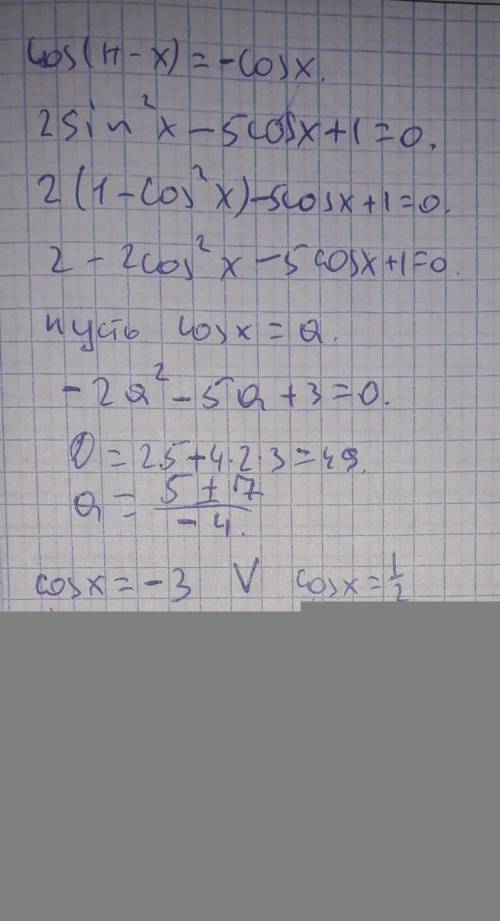 cos(π-x)=-cosx.
2sin²x-5cosx+1=0.
2(1-cos²x)-5cosx+1=0.
2-2cos²x-5cosx+1=0.
пусть cosx=a.
-2a²-5a+3=0.
D=25+4·2·3=49.
a=(5±7)/(-4).
cosx=-3 V cosx=1/2